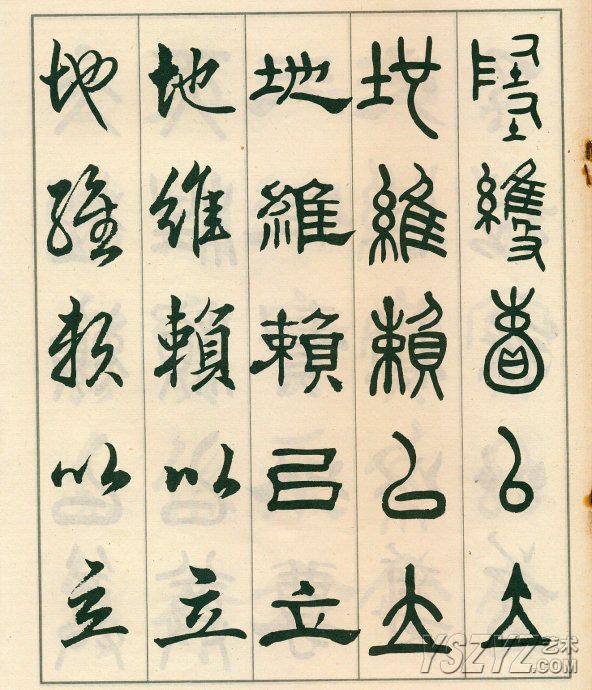 地維賴以立
地維賴以立
地維賴以立
地維賴以立
地維賴以立
YSZYZ艺术.COM